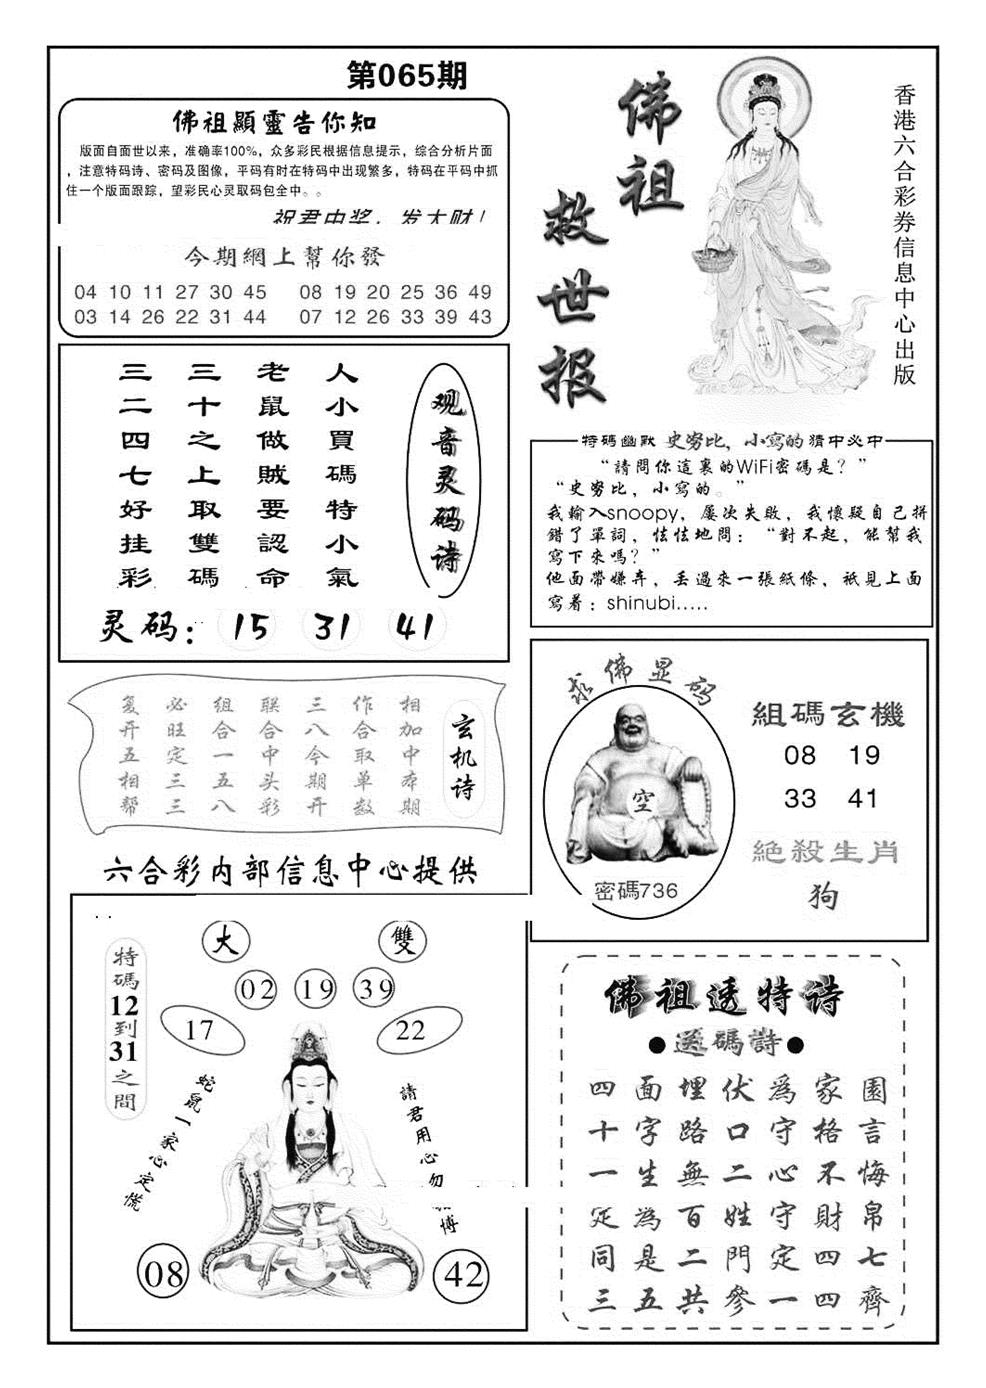 第065期
佛祖顯靈告你知
版面自面世以来，准确率100%，众多彩民根据信息提示，综合分析片面
，注意特码诗、密码及图像，平码有时在特码中出现繁多，特码在平码中抓
住一个版面跟踪，望彩民心灵取码包全中。。
祝君中奖，发大财！
今期網上幫你發
04 10 11 27 30 45 08 19 20 25 36 49
03 14 26 22 31 44 07 12 26 33 39 43
佛祖
救世报
香港六合彩券信息中心出版
观音灵码诗
人小買碼特小氣
老鼠做賊要認命
三十之上取雙碼
三二四七好挂彩
灵码： 15 31 41
特碼幽默 史努比，小寫的 猜中必中
“請問你這裏的WiFi密碼是？”
“史努比，小寫的。”
我輸入snoopy，屢次失敗，我懷疑自己拼
錯了單詞，怯怯地問：“對不起，能幫我
寫下來嗎？”
他面帶嫌弃，丢過來一張紙條，祇見上面
寫着：shinubi.....
玄机诗
相加中本期
作合取单数
三八今期开
联合中头彩
组合一五八
必旺定三三
复开五相帮
求佛显码
空
密碼736
組碼玄機
08 19
33 41
絕殺生肖
狗
六合彩内部信息中心提供
特碼12到31之間
大 雙
02 19 39
17 22
蛇鼠一家心定慌
請君用心勿 博
08 42
佛祖透特诗
●送碼詩●
園言悔帛七齊
家格不財四四
為守心守定一
伏口二姓門參
埋路無百二共
面字生為是五
四十一定同三